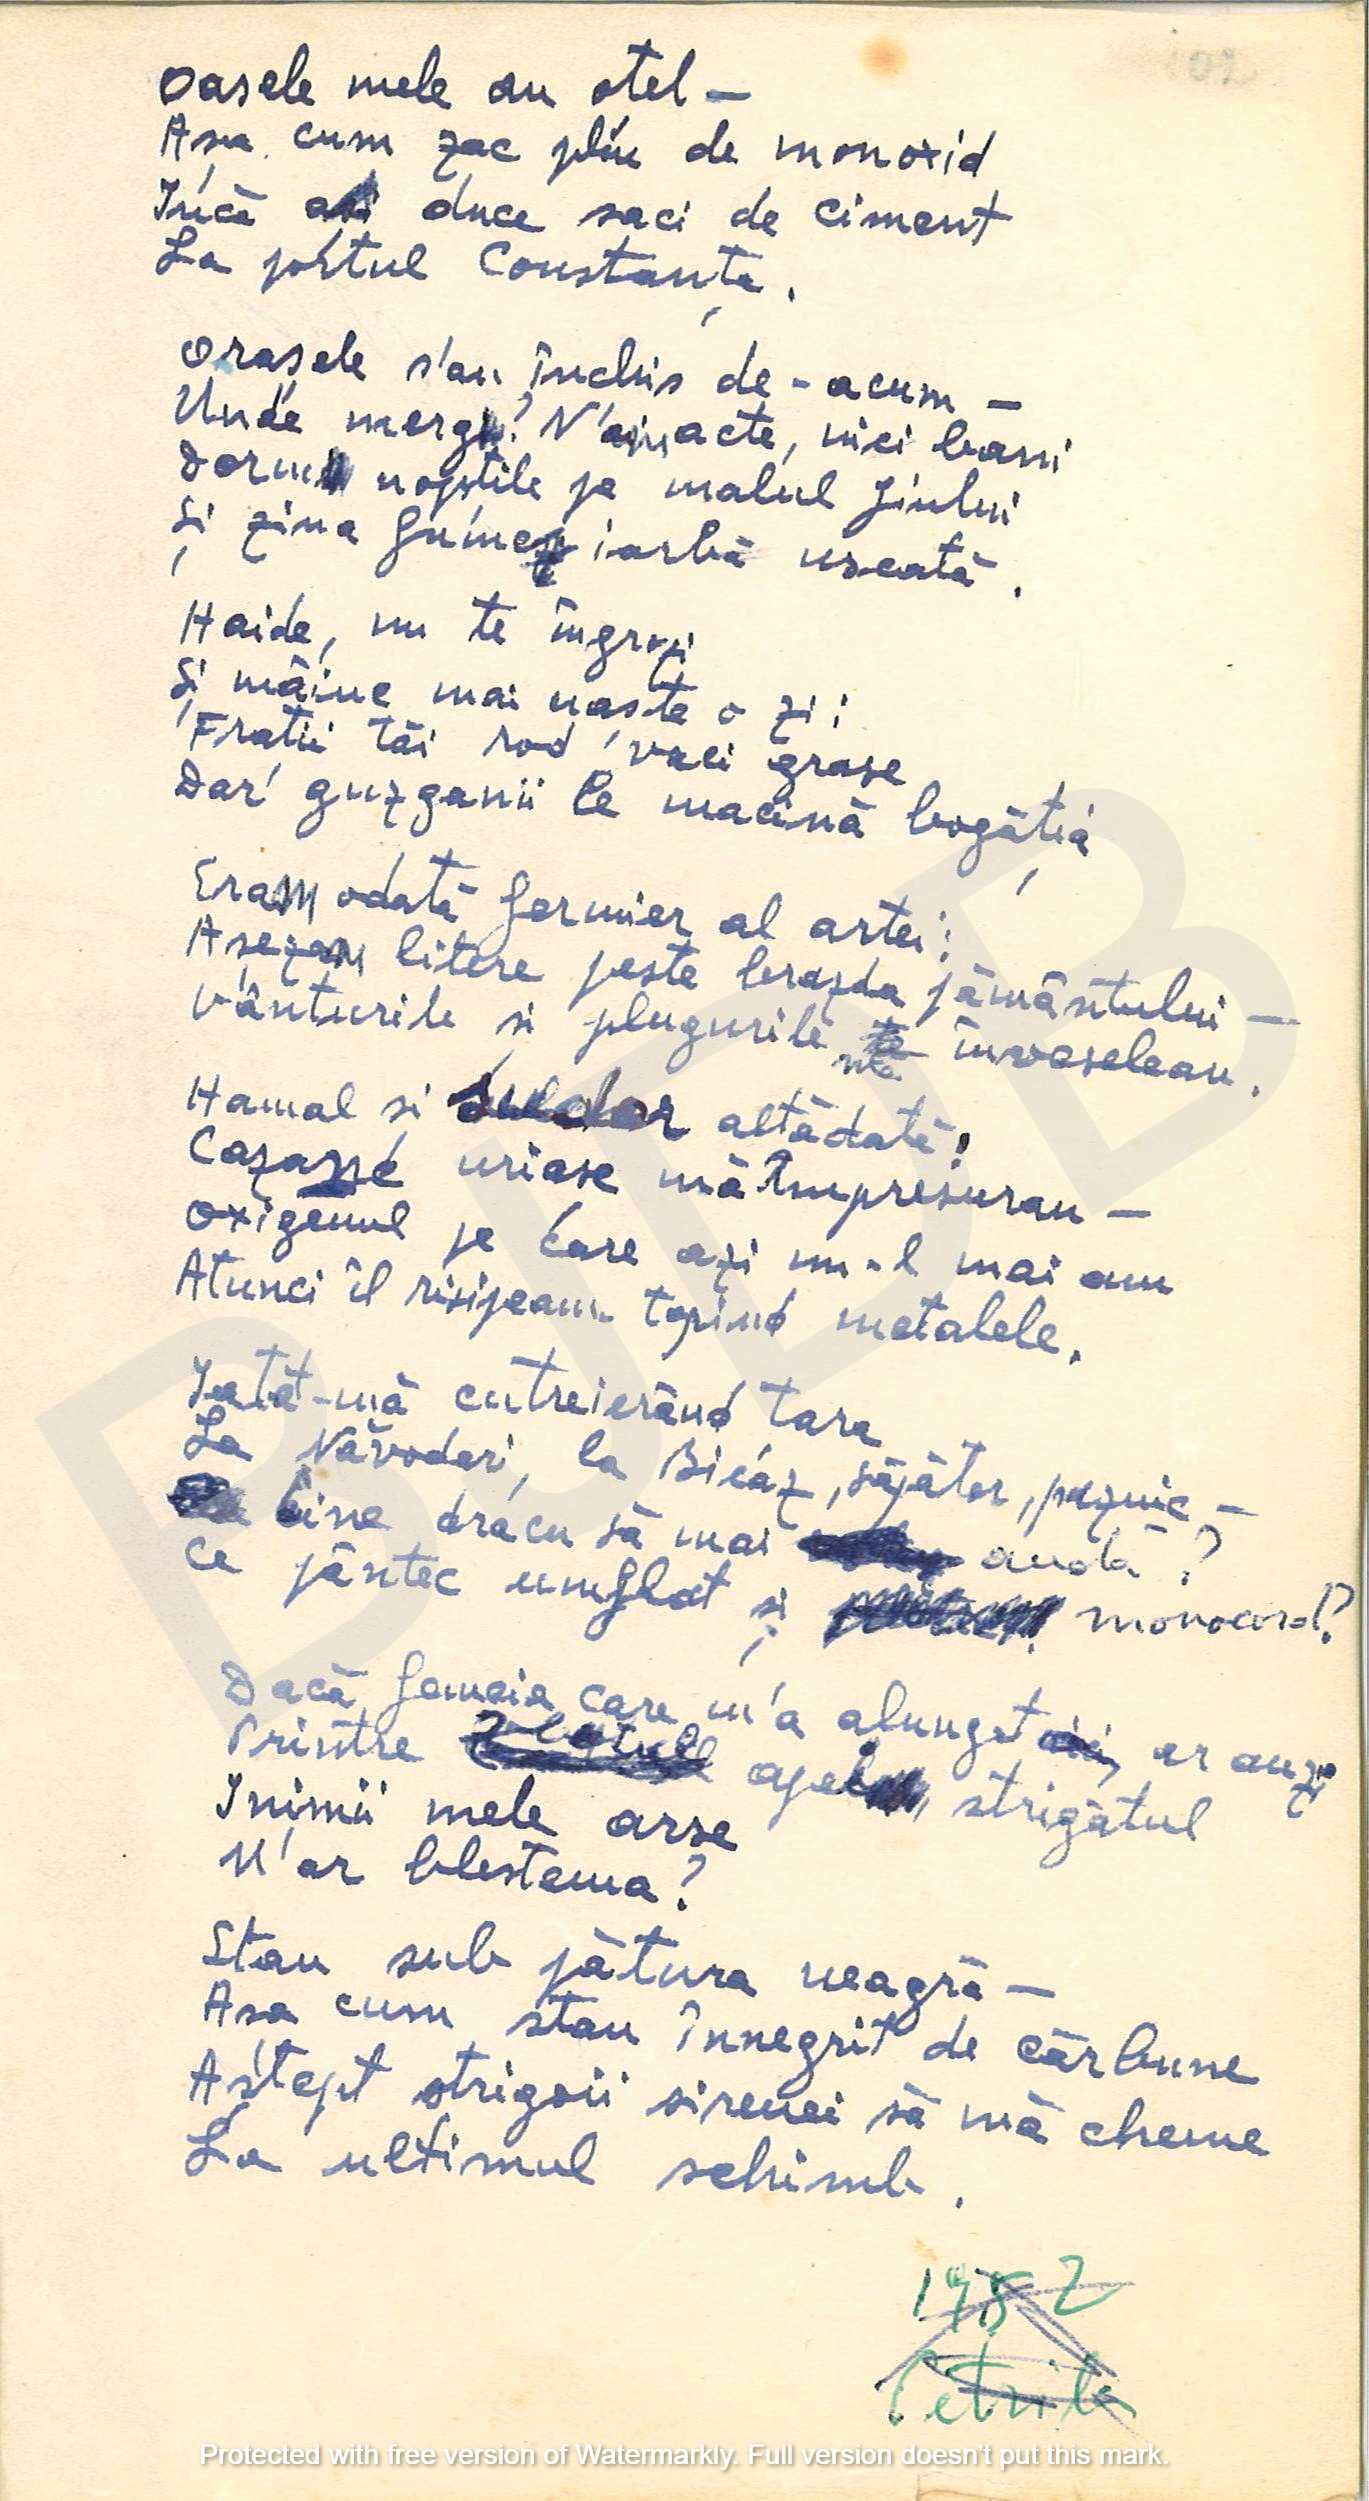 Oasele mele au oțel —
Așa cum zac plin de monoxid
Încă aș duce saci de ciment
La portul Constanța.
Orașele s'au închis de-acum —
Unde merg? N'am acte, nici bani
Dorm nopțile pe malul Jiului
Și ziua fumez iarbă uscată.
Haide, nu te îngropi
Și mâine mai naște o zi;
Frații tăi rod vaci grase
Dar guzganii le macină bogăția
Eram odată fermier al artei;
Așezam litere peste brazda pământului —
Vânturile și plugurile mă învăseleau.
Hamal și sudor altădată!
Cazane uriașe mă împresurau —
Oxigenul pe care azi nu-l mai am
Atunci îl risipeam topind metalele.
Iată-mă cutreierând țara
La Năvodari, la Bicaz, săpător, paznic —
Cine dracu să mai audă?
Ce pântec umflat și monocord?
Dacă femeia care m'a alungat ar auzi
Printre apel, strigătul
Inimii mele arse
M'ar blestema?
Stau sub pătura neagră —
Așa cum stau înnegrit de cărbune
Aștept strigoii sirenei să mă cheme
La ultimul schimb.
1982
Petrila
BJDB
Protected with free version of Watermarkly. Full version doesn't put this mark.